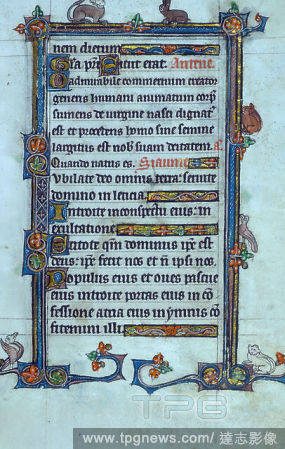 nem dierum
Gra pri Sicut erat. Antene
O admirabile commercium creator
generis humani animatum corp
sumens de virgine nasci dignat
est et procedens homo sine semine
largitus est nob suam deitatem. a.
Quando natus es. Psaume
Iubilate deo omnis terra: servite
domino in leticia
Introite in conspectu eius: in
exultatione
Scitote qm dominus ipe est
deus: ipe fecit nos et n ipsi nos,
Populus eius et oves pascue
eius introite portas eius in co
fessione atria eius in ymnis co
fitemini illi
TPG
www.tpgnews.com/ 達志影像